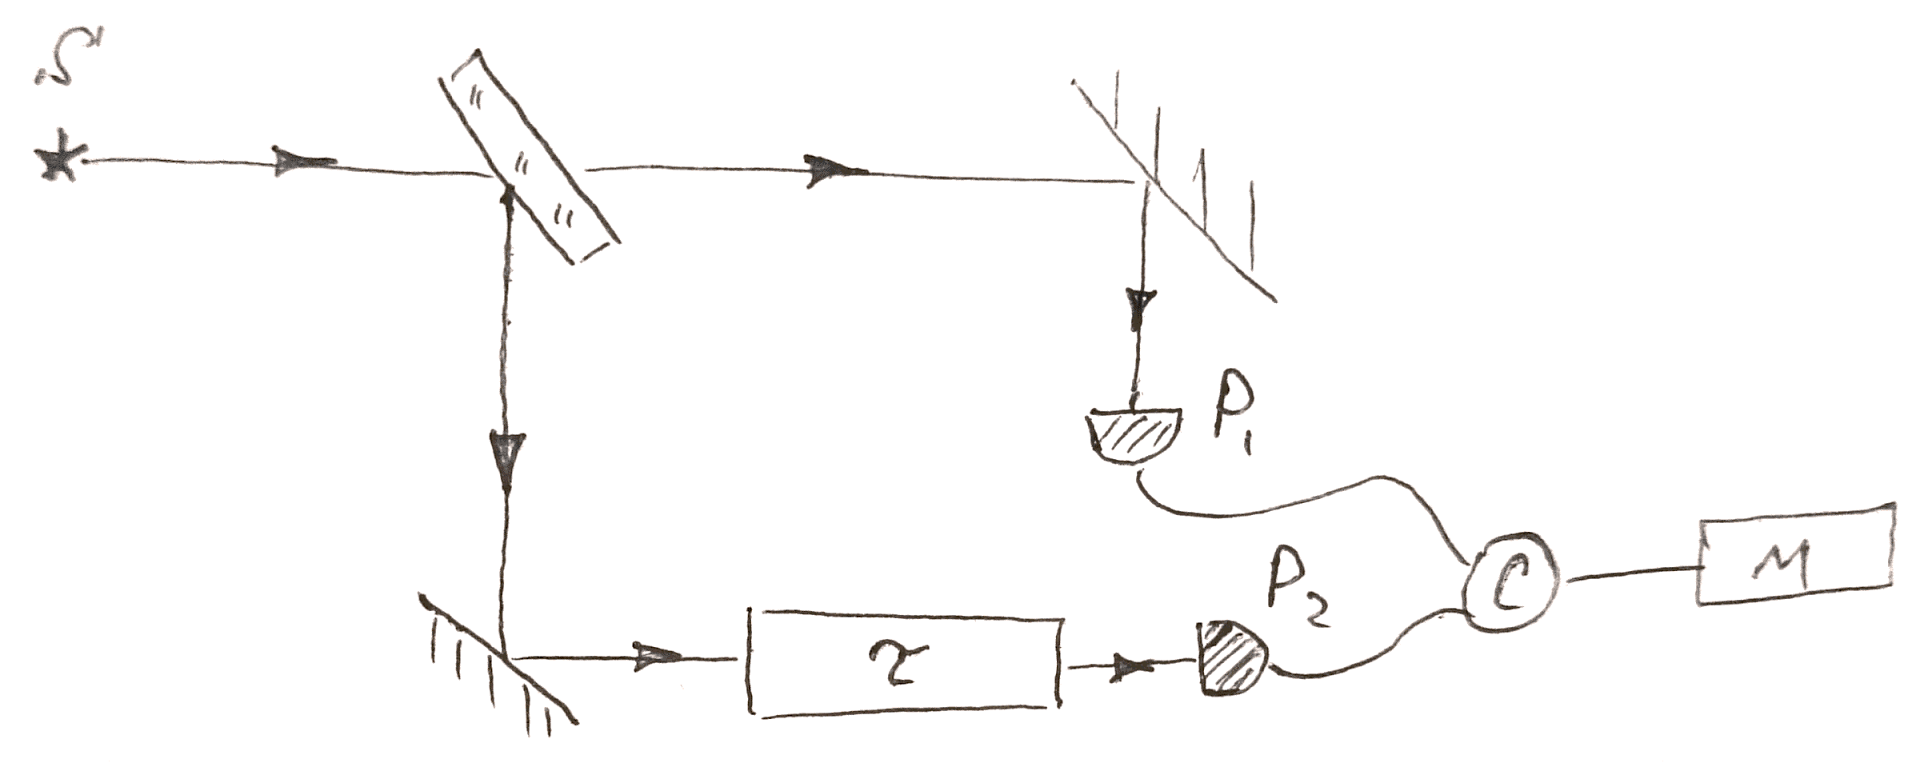 S
P₁
P₂
C
M
τ